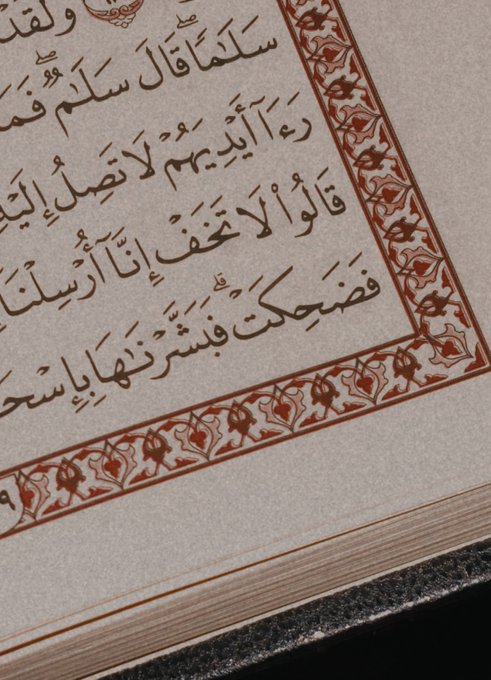 وَلَقَدْ
سَلَٰمًاۖ قَالَ سَلَٰمٌۖ فَمَا
رَءَآ أَيْدِيَهُمْ لَا تَصِلُ إِلَيْهِ
قَالُوا۟ لَا تَخَفْ إِنَّآ أُرْسِلْنَآ
فَضَحِكَتْ فَبَشَّرْنَٰهَا بِإِسْحَ
٩